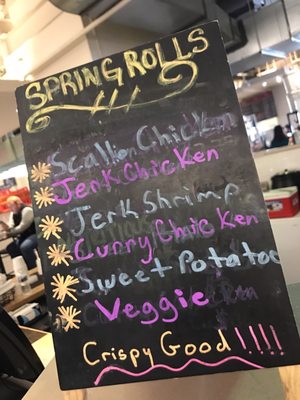 SPRING ROLLS
Scallion Chicken
Jerk Chicken
Jerk Shrimp
Curry Chicken
Sweet Potatoe
Veggie
Crispy Good!!!!